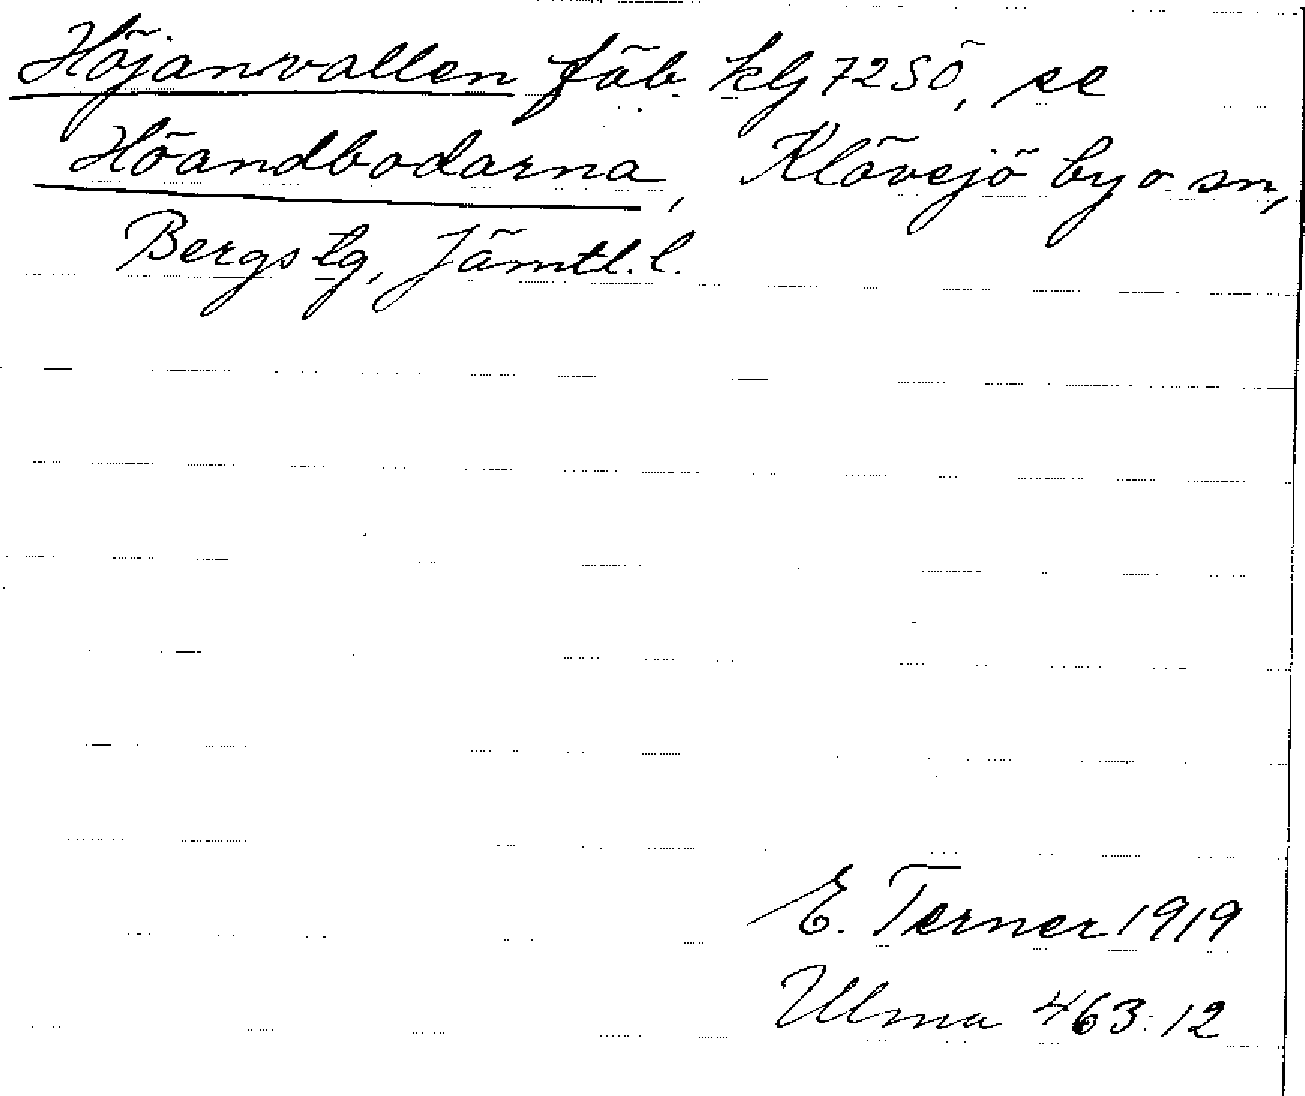 Höjanvallen fäb. kbl 72SÖ, se
Höandbodarna, Klövsjö by o sn,
Bergs tg, Jämtl. l.
E. Terner 1919
Ulma 463:12